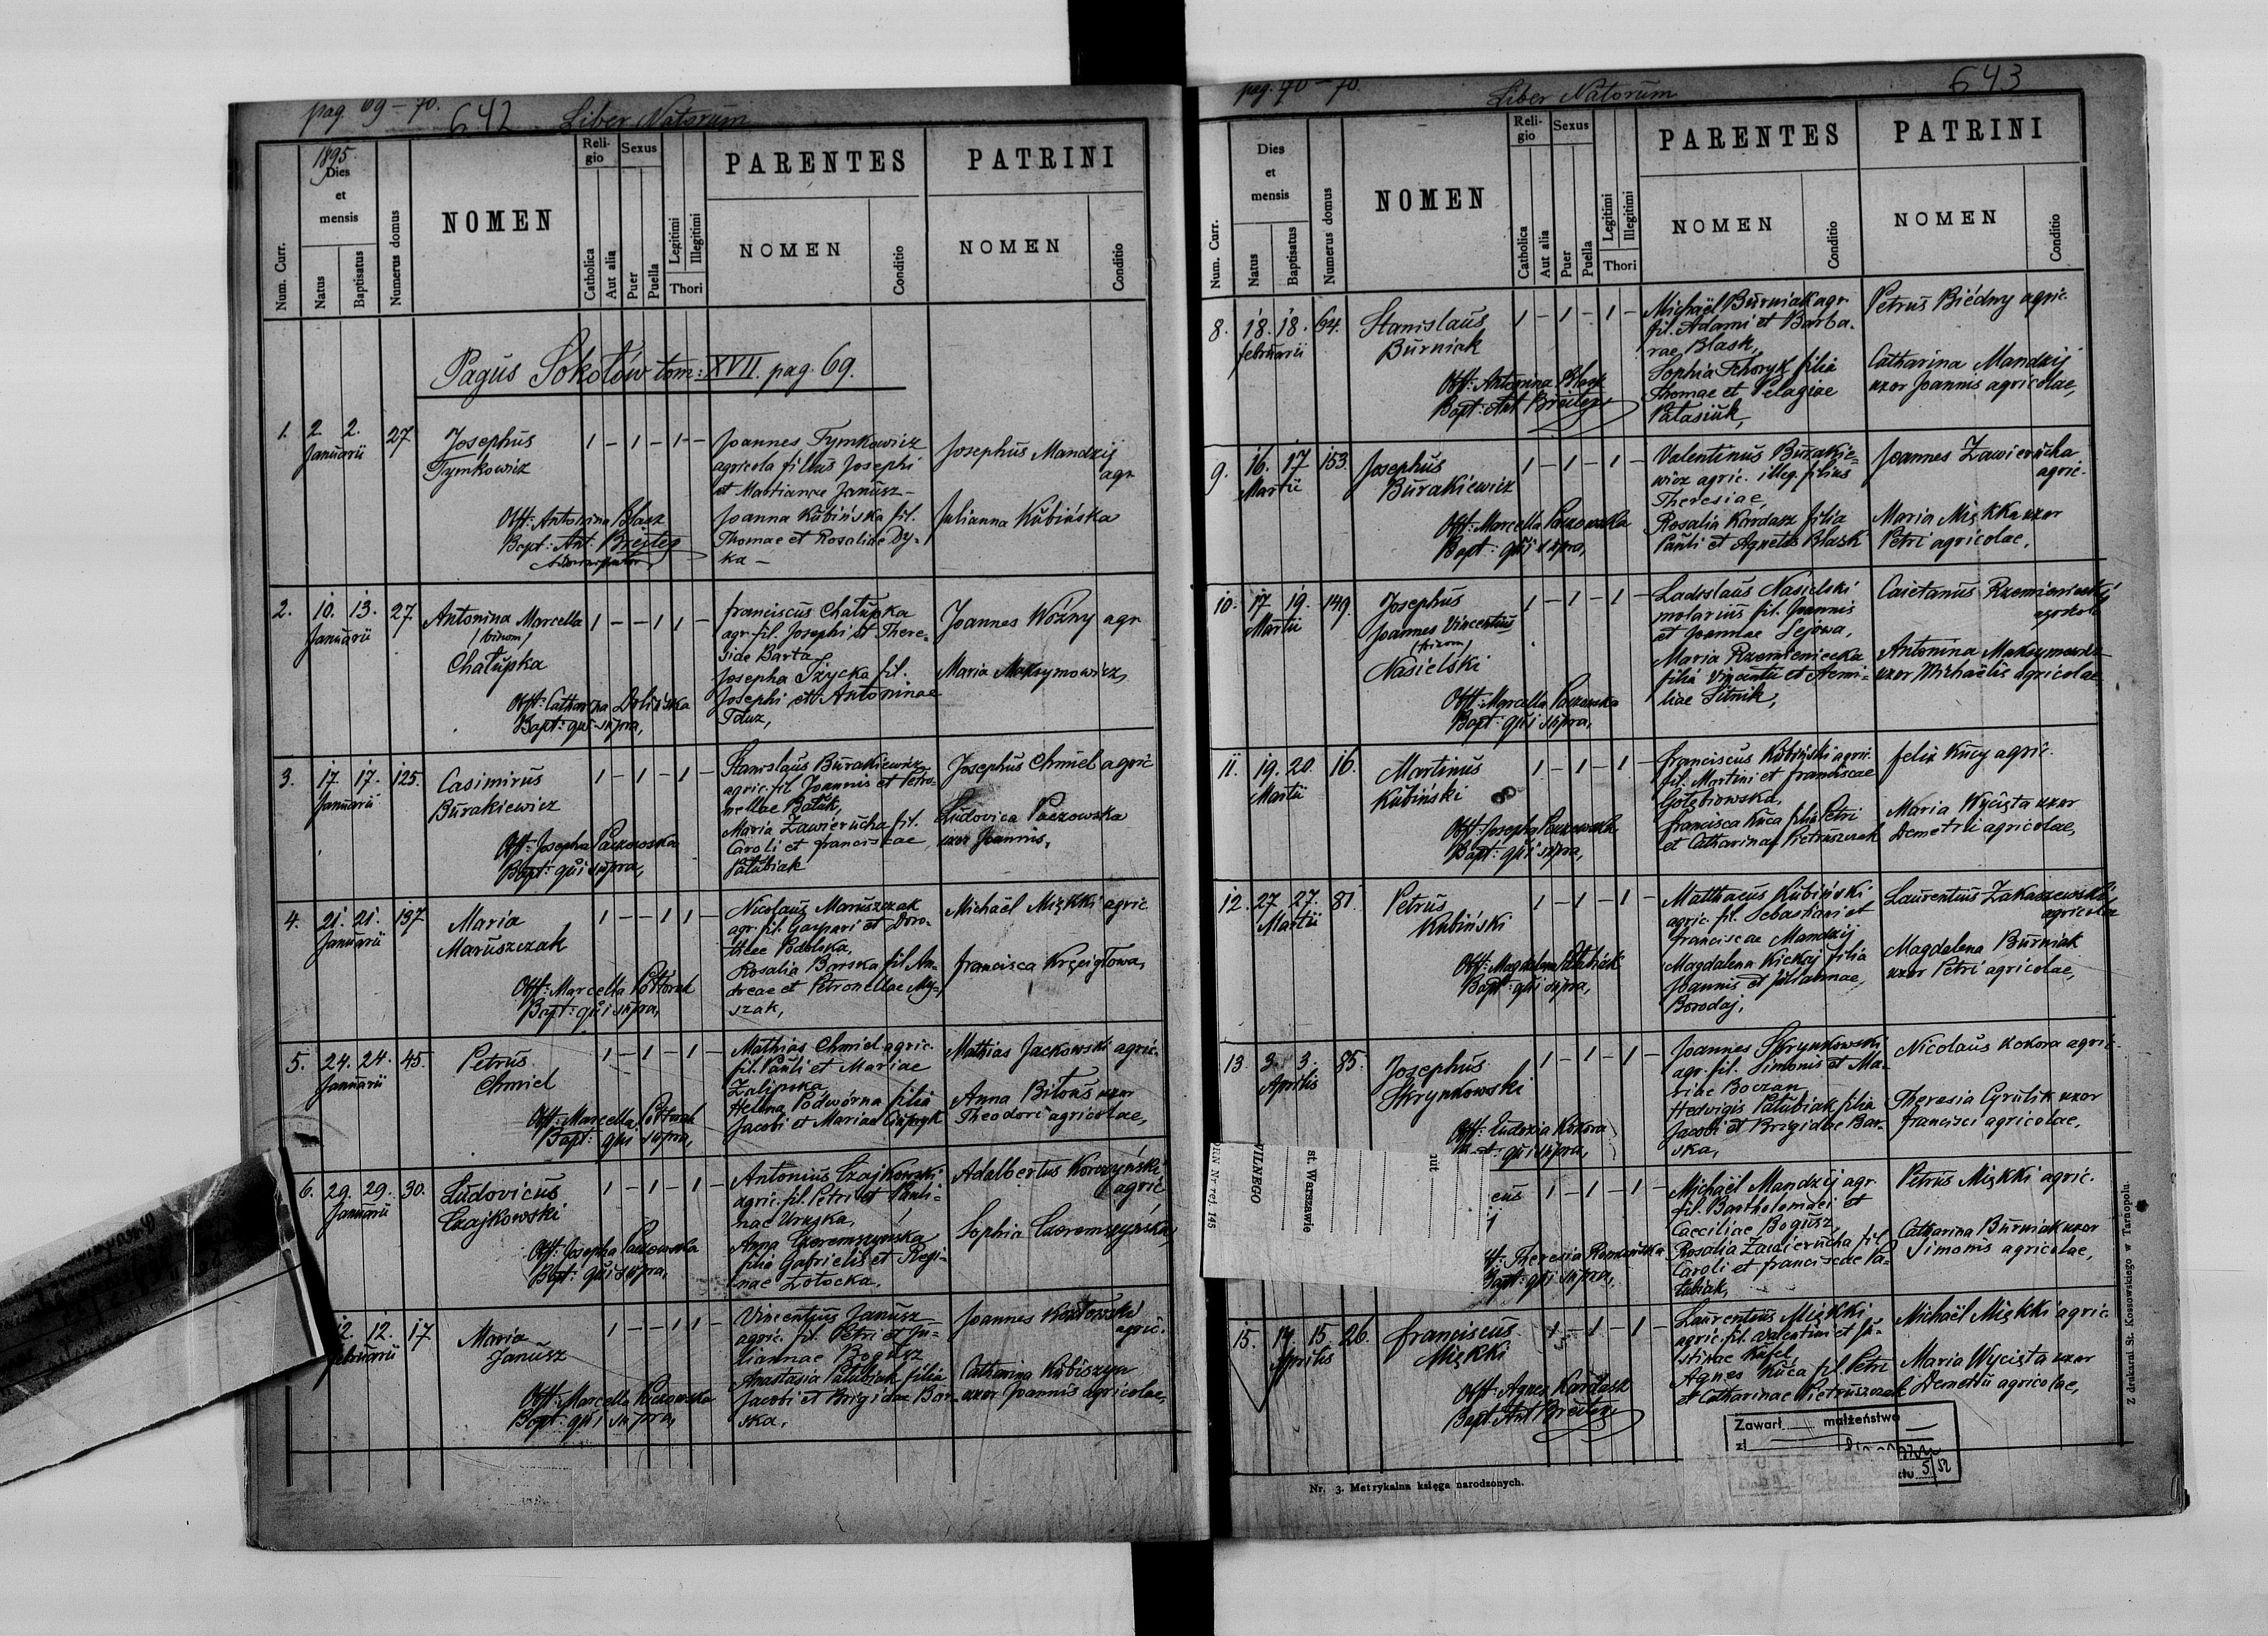 pag. 69 – 70.
642 Liber Natorum
1895.
Num. Curr.
Dies et mensis
Natus
Baptisatus
Numerus domus
NOMEN
Religio
Catholica
Aut alia
Sexus
Puer
Puella
Legitimi
Illegitimi
Thori
PARENTES
NOMEN
Conditio
PATRINI
NOMEN
Conditio
Pagus Sokołów tom: XVII. pag. 69.
1. 2. 2. Januarii 27
Josephus
Tymkowicz
Obst: Antonina Blazk
Bapt: Ant. Breiter
Administrator
1 – 1 – 1 –
Joannes Tymkowicz
agricola filius Josephi
et Martianae Janusz –
Joanna Kubińska fil.
Thomae et Rosaliae Dy-
ka –
Josephus Mandzij
agr
Julianna Kubińska
2. 10. 13. Januarii 27.
Antonina Marcella
(binom)
Chałupka
Obst: Catharina Dolińska
Bapt: qui supra,
1 – – 1 1 –
Franciscus Chałupka
agr. fil. Josephi et There-
siae Barta
Josepha Iżycka fil.
Josephi et Antoninae
Tduz,
Joannes Woźny agr
Maria Maksymowicz,
3. 17. 17. Januarii 125.
Casimirus
Burakiewicz
Obst: Josepha Paczowska
Bapt: qui supra,
1 – 1 – 1 –
Stanislaus Burakiewicz
agric. fil. Joannis et Petro-
nellae Bałuk,
Maria Zawierucha fil.
Caroli et Franciscae
Pałubiak
Josephus Chmiel agric
Ludovica Paczowska
uxor Joannis,
4. 21. 21. Januarii 137
Maria
Maruszczak
Obst: Marcella Półtorak
Bapt: qui supra,
1 – – 1 1 –
Nicolaus Maruszczak
agr. fil. Gaspari et Doro-
theae Podolska,
Rosalia Barska fil. An-
dreae et Petronellae My-
szak,
Michaël Miękki agric
Francisca Krzeigłowa,
5. 24. 24. Januarii 45.
Petrus
Chmiel
Obst: Marcella Półtorak
Bapt: qui supra,
1 – 1 – 1 –
Mathias Chmiel agric.
fil. Pauli et Mariae
Zalipska
Helena Podwórna filia
Jacobi et Mariae Ciupryk
Mathias Jackowski agric.
Anna Bilous uxor
Theodori agricolae,
6. 29. 29. Januarii 30.
Ludovicus
Czajkowski
Obst: Josepha Paczowska
Bapt: qui supra,
1 – 1 – 1 –
Antonius Czajkowski
agric. fil. Petri et Pauli-
nae Uruska,
Anna Czeremszyńska
filia Gabrielis et Regi-
nae Zołocka,
Adalbertus Korczyński
agric
Sophia Czeremszyńska,
12. 12. februarii 17.
Maria
Janusz
Obst: Marcella Paczowska
Bapt: qui supra,
1 – – 1 1 –
Vincentius Janusz
agric. fil. Petri et Ju-
liannae Bogusz
Anastasia Pałubiak filia
Jacobi et Brigidae Bar-
ska,
Joannes Kozłowski
agric.
Catharina Kubiszyn
uxor Joannis agricolae,
pag. 70 – 70.
Liber Natorum
643
Num. Curr.
Dies et mensis
Natus
Baptisatus
Numerus domus
NOMEN
Religio
Catholica
Aut alia
Sexus
Puer
Puella
Legitimi
Illegitimi
Thori
PARENTES
NOMEN
Conditio
PATRINI
NOMEN
Conditio
8. 18. 18. februarii 64.
Stanislaus
Burniak
Obst: Antonina Blazk
Bapt: Ant Breiter
1 – 1 – 1 –
Michaël Burniak agr.
fil. Adami et Barba-
rae Blask,
Sophia Tchoryk filia
Thomae et Pelagiae
Patasiuk,
Petrus Biédny agric.
Catharina Mandzij
uxor Joannis agricolae,
9. 16. 17 Martii 153.
Josephus
Burakiewicz
Obst: Marcella Paczowska
Bapt: qui supra,
1 – 1 – 1 –
Valentinus Burakie-
wicz agric. illeg. filius
Theresiae,
Rosalia Kardasz filia
Pauli et Agnetis Blask
Joannes Zawierucha
agric.
Maria Miękka uxor
Petri agricolae,
10. 17 19. Martii 149.
Josephus
Joannes Vincentius
(trinom)
Nasielski
Obst: Marcella Paczowska
Bapt: qui supra,
1 – 1 – 1 –
Ladislaus Nasielski
molarius fil. Joannis
et Joannae Sejowa,
Maria Rzemieniecka
filia Vincentii et Aemi-
liae Sitnik,
Caietanus Rzemieniecki
agricola
Antonina
uxor Michaëlis agricolae
11. 19. 20. Martii 16.
Martinus
Kubiński
Obst: Josepha Paczowska
Bapt: qui supra,
1 – 1 – 1 –
Franciscus Kubiński agric.
fil. Martini et Franciscae
Gołębiowska,
Francisca Kuca filia Petri
et Catharinae Pietruszczak
Felix Kucy agric.
Maria Wycięta uxor
Demetrii agricolae,
12. 27 27. Martii 81.
Petrus
Kubiński
Obst: Magdalena Pałubiak
Bapt: qui supra,
1 – 1 – 1 –
Matthaeus Kubiński
agric. fil. Sebastiani et
Franciscae Mandzij
Magdalena Kickaj filia
Joannis et Juliannae
Borodaj,
Laurentius Zakaszewski
agricola
Magdalena Burniak
uxor Petri agricolae,
13. 3. 3. Aprilis 85.
Josephus
Skrynkowski
Obst: Eudoxia Kokora
qui supra,
1 – 1 – 1 –
Joannes Skrynkowski
agr. fil. Simonis et Ma-
riae Boczan
Hedvigis Pałubiak filia
Jacobi et Brigidae Bar-
ska,
Nicolaus Kokora agric.
Theresia Cyrulik uxor
Francisci agricolae,
eus
j
Theresia
Bapt: qui supra,
1 – 1 – 1 –
Michaël Mandzij agr.
fil. Bartholomaei et
Caeciliae Bogusz
Rosalia Zawierucha fil.
Caroli et Franciscae Pa-
łubiak,
Petrus Miękki agric.
Catharina Burniak uxor
Simonis agricolae,
15. 14. 15. Aprilis 26.
Franciscus
Miękki
Obst: Agnes Kardasz
Bapt. Ant Breiter
1 – 1 – 1 –
Laurentius Miękki
agric. fil. Valentini et Ju-
stinae Kufel,
Agnes Kuca fil. Petri
et Catharinae Pietruszczak
Michaël Miękki agric.
Maria Wycięta uxor
Demetrii agricolae,
Zawarł małżeństwo
5/52
Nr. 3. Metrykalna księga narodzonych.
Z drukarni St. Kossowskiego w Tarnopolu.
VILNEGO
st. Warszawie
Nr rej. 145